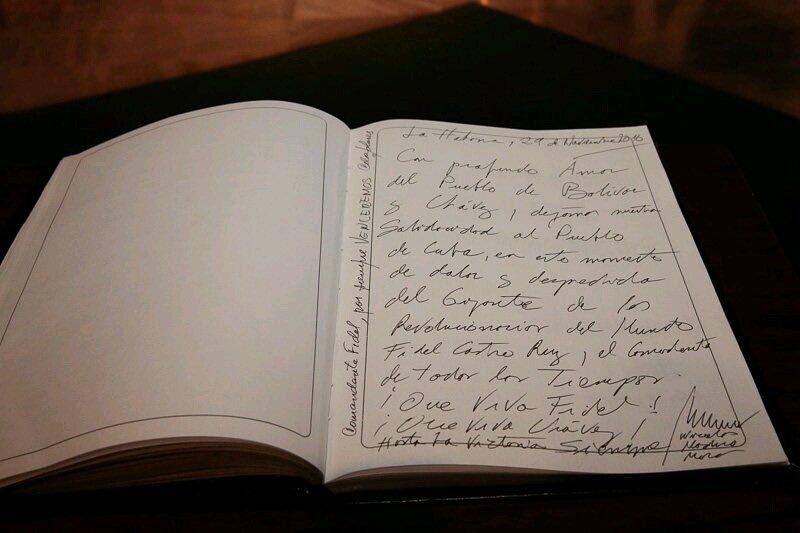 La Habana, 29 de Noviembre 2016
Con profundo Amor
del Pueblo de Bolivar
y Chávez, dejamos nuestra
Solidaridad al Pueblo
de Cuba, en este momento
de dolor y despedida
del Gigante de los
Revolucionarios del Mundo
Fidel Castro Ruz, el Comandante
de todos los Tiempos.
¡Que Viva Fidel!!
¡Que Viva Chávez!
Hasta La Victoria Siempre
Nicolás
Maduro
Moro
Comandante Fidel, por siempre VENCEREMOS